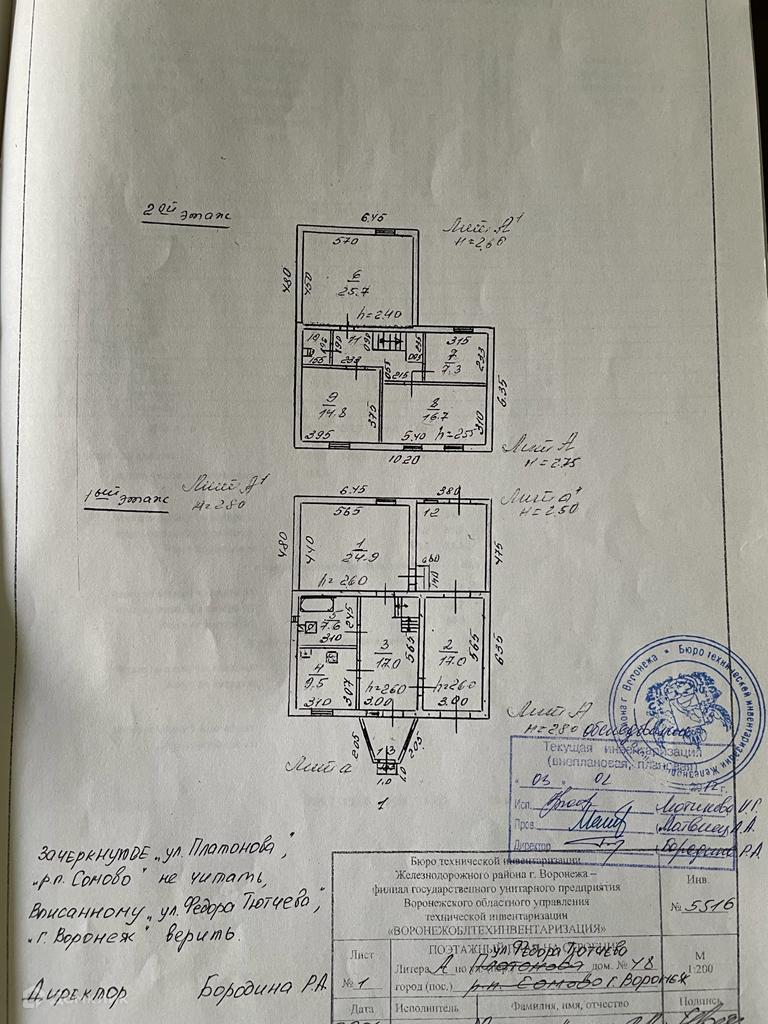 2ой этаж
6.45
Лит А¹
H=2,66
570
480
450
6
25.7
h=2.40
10
11
315
7
7.3
233
238
215
9
14.8
375
8
16.7
310
6.35
395
5.40 h=255
10.20
Лит А
H=2.75
1ый этаж
Лит А¹
H=2.80
6.45
380
Лит а¹
H=2.50
565
12
480
440
1
24.9
475
h=260
5
7.6
245
310
3
17.0
565
2
17.0
565
635
4
9.5
307
h=260
h=260
310
3.00
3.00
Лит А
H=280
205
13
205
Лит а
1.0
1
Бюро технической инвентаризации
Железнодорожного района г. Воронежа
Текущая инвентаризация
(внеплановая, плановая)
" 03 " 02 2012 г.
Исп.
Пров.
Директор Бородина Р.А.
Зачеркнутое „ул. Платонова",
„р.п. Сомово" не читать,
Вписанному „ул. Федора Тютчева",
„г. Воронеж" верить.
Директор Бородина Р.А.
Бюро технической инвентаризации
Железнодорожного района г. Воронежа –
филиал государственного унитарного предприятия
Воронежского областного управления
технической инвентаризации
«ВОРОНЕЖОБЛТЕХИНВЕНТАРИЗАЦИЯ»
Инв.
№ 5516
Лист
№ 1
ПОЭТАЖНЫЙ ПЛАН НА СТРОЕНИЕ
ул. Федора Тютчева
Литера А по Платонова дом. № 48
город (пос.) р.п. Сомово г. Воронеж
М
1:200
Дата
Исполнитель
Фамилия, имя, отчество
Подпись